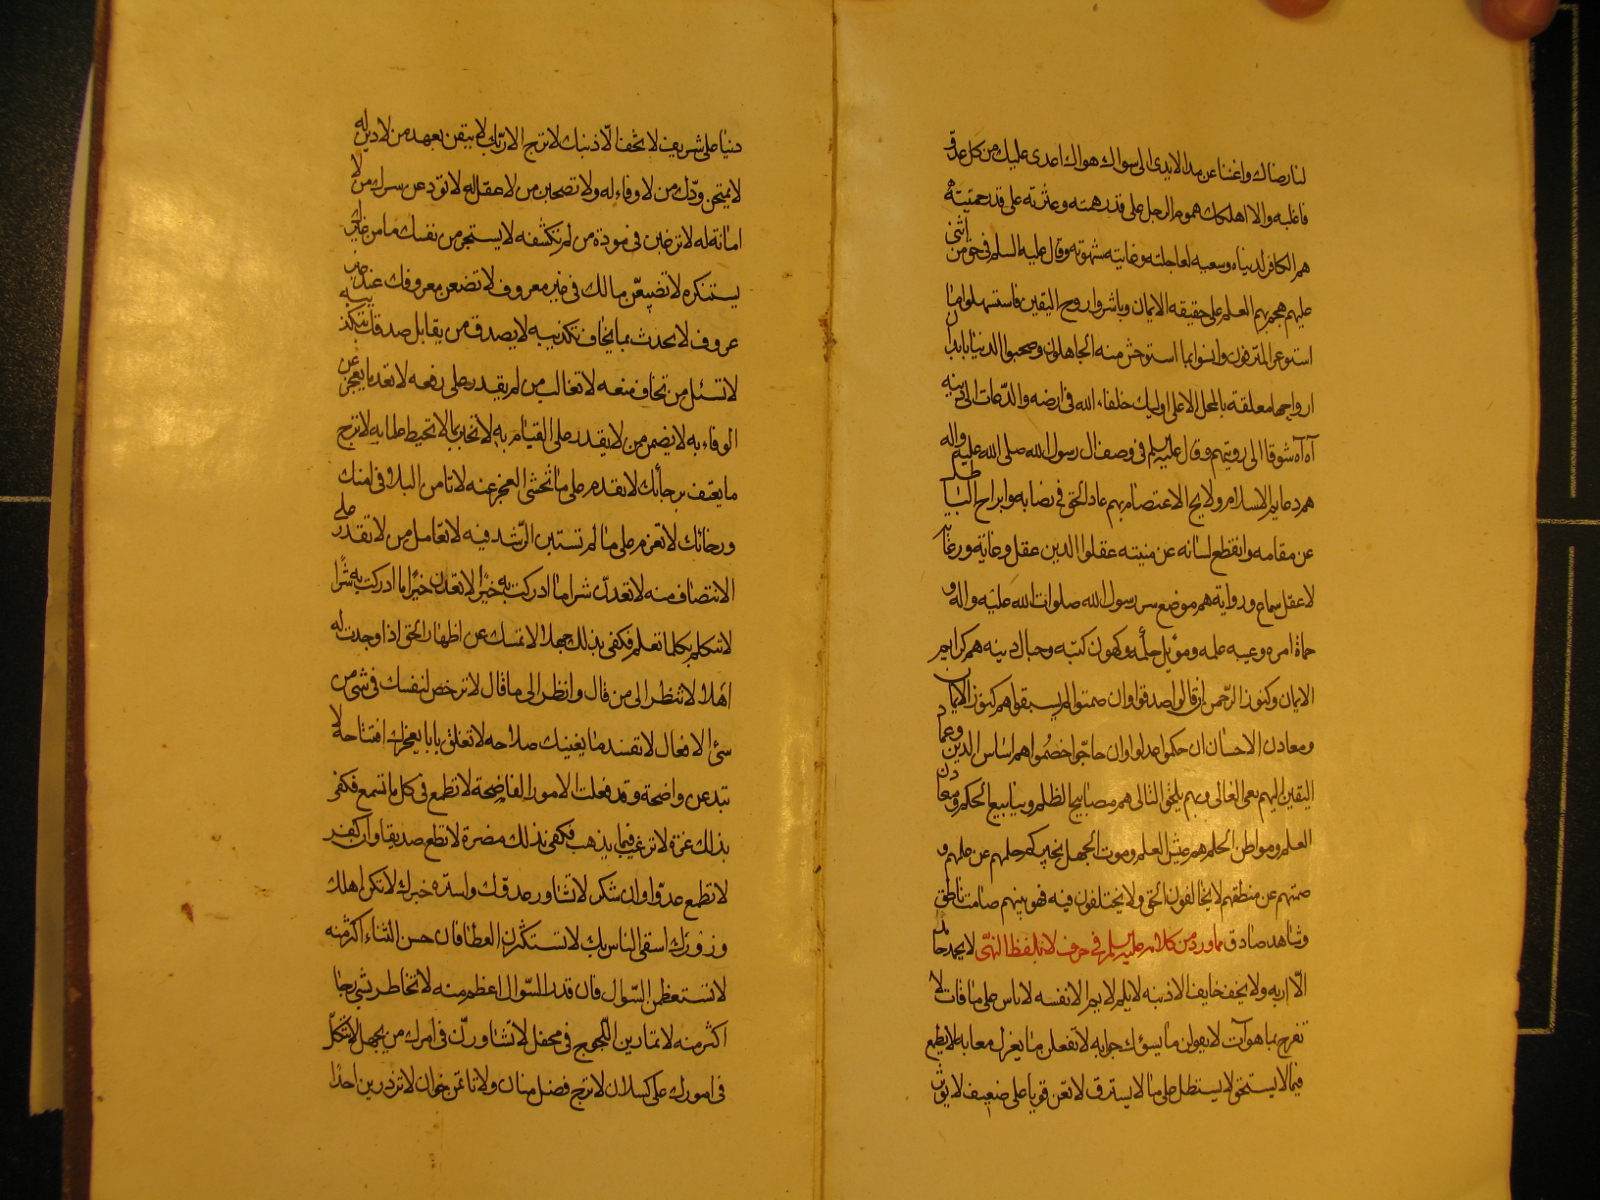 لنا رضاك واغننا عن مد الايدى الى سواك هواك اعدى عليك من كل عدو
فاغلبه والا اهلكك هموم الرجل على قدر همته وغيرته على قدر حميته
هم الكافر لدنياه وسعيه لعاجلته وغايته شهوته وقال عليه السلم فى حق من اثنى
عليهم هجم بهم العلم على حقيقه الايمان وباشروا روح اليقين فاستسهلوا ما
استوعر المترفون وانسوا بما استوحش منه الجاهلون وصحبوا الدنيا بابدان
ارواحها معلقة بالمحل الاعلى اوليك خلفاء الله فى ارضه والدعات الى دينه
آه آه شوقا الى رويتهم وقال عليه السلم فى وصف ال رسول الله صلى الله عليه واله
هم دعايم الاسلام وولايج الاعتصام بهم عاد الحق فى نصابه وانزاح الباطل
عن مقامه وانقطع لسانه عن منبته عقلوا الدين عقل وعاية ورعاية
لا عقل سماع ورواية هم موضع سر رسول الله صلوات الله عليه واله و
حماة امره وعيبه علمه وموئل حكمه وكهوف كتبه وحبال دينه هم كرايم
الايمان وكنوز الرحمن ان قالوا صدقوا وان صمتوا لم يسبقوا هم كنوز الايمان
ومعادن الاحسان ان حكموا عدلوا وان حاجوا خصموا هم اساس الدين وعماد
اليقين اليهم يفى الغالى وبهم يلحق التالى هم مصابيح الظلم وينابيع الحكم ومعادن
العلم ومواطن الحلم هم عيش العلم وموت الجهل يخبركم حلمهم عن علمهم و
صمتهم عن منطقهم لا يخالفون الحق ولا يختلفون فيه فهو بينهم صامت ناطق
وشاهد صادق مما ورد من كلامه عليه السلم فى حرف لا بلفظ النهى لا يحمد حامد
الا ربه ولا يخف خايف الا ذنبه لا يلم لايم الا نفسه لا تاس على ما فات لا
تفرح بما هوآت لا تقولن ما يسؤك جوابه لا تفعلن ما يعرك معابه لا تطمع
فيما لا يستحق لا يستطل على من لا يسترق لا تعن قويا على ضعيف لا توثر
دنيا على شريف لا تخف الا ذنبك لا ترج الا ربك لا يثقن بعهد من لا دين له
لا يمنحن ودك من لا وفاء له ولا تصحبن من لا عقل له لا تودعن سرك من لا
امانة له لا ترغبن فى مودة من لم تكشفه لا يستجر من نفسك ما من غيرك
يستنكره لا تضيعن مالك فى غير معروف لا تضعن معروفك عند غير
عروف لا تحدث بما يخاف تكذيبه لا يصدق من يقابل صدقك بتكذيبه
لا تسئل من تخاف منعه لا تغالب من لم يقدر على دفعه لا تعد بما يعجز عن
الوفاء به لا يضمن من لا يقدر على القيام به لا تخبر بما لا تحيط علما به لا ترج
ما يعنف برجائك لا تقدم على ما تخشى العجز عنه لا تامن البلاء فى امنك
ورخائك لا تعزم على ما لم تستبن الرشد فيه لا تعامل من لا تقدر على
الانتصاف منه لا تعدن شرا ما ادركت به خيرا لا تعدن خيرا ما ادركت به شرا
لا تتكلم بكلما تعلم فكفى بذلك جهلا لا تمسك عن اظهار الحق اذا وجدت له
اهلا لا تنظر الى من قال وانظر الى ما قال لا ترخص لنفسك فى شى من
سئ الافعال لا تفسد ما يغنيك صلاحه لا تغلق بابا يعجزك افتتاحه لا
تبدعن واضحة وقد فعلت الامور الفاضحة لا تطمع فى كل ما تسمع فكفى
بذلك غرة لا ترغب فيما يذهب فكفى بذلك مضرة لا تطع صديقا وان كفر
لا تطمع عدوا وان شكر لا تشاور عدوك واستره خبرك لا تنكر اهلك
وزورك اسقى الناس بك لا تستكثرن العطا فان حسن الثناء اكثر منه
لا تستعظمن السوال فان قدر السوال اعظم منه لا تخاطر بشى رجا
اكثر منه لا تمارين اللجوج فى محفل لا تشاورن فى امرك من يجهل لا تتكل
فى امورك على كسلان لا ترج فضل منان ولا تاتمن خوان لا تزدرين احدا